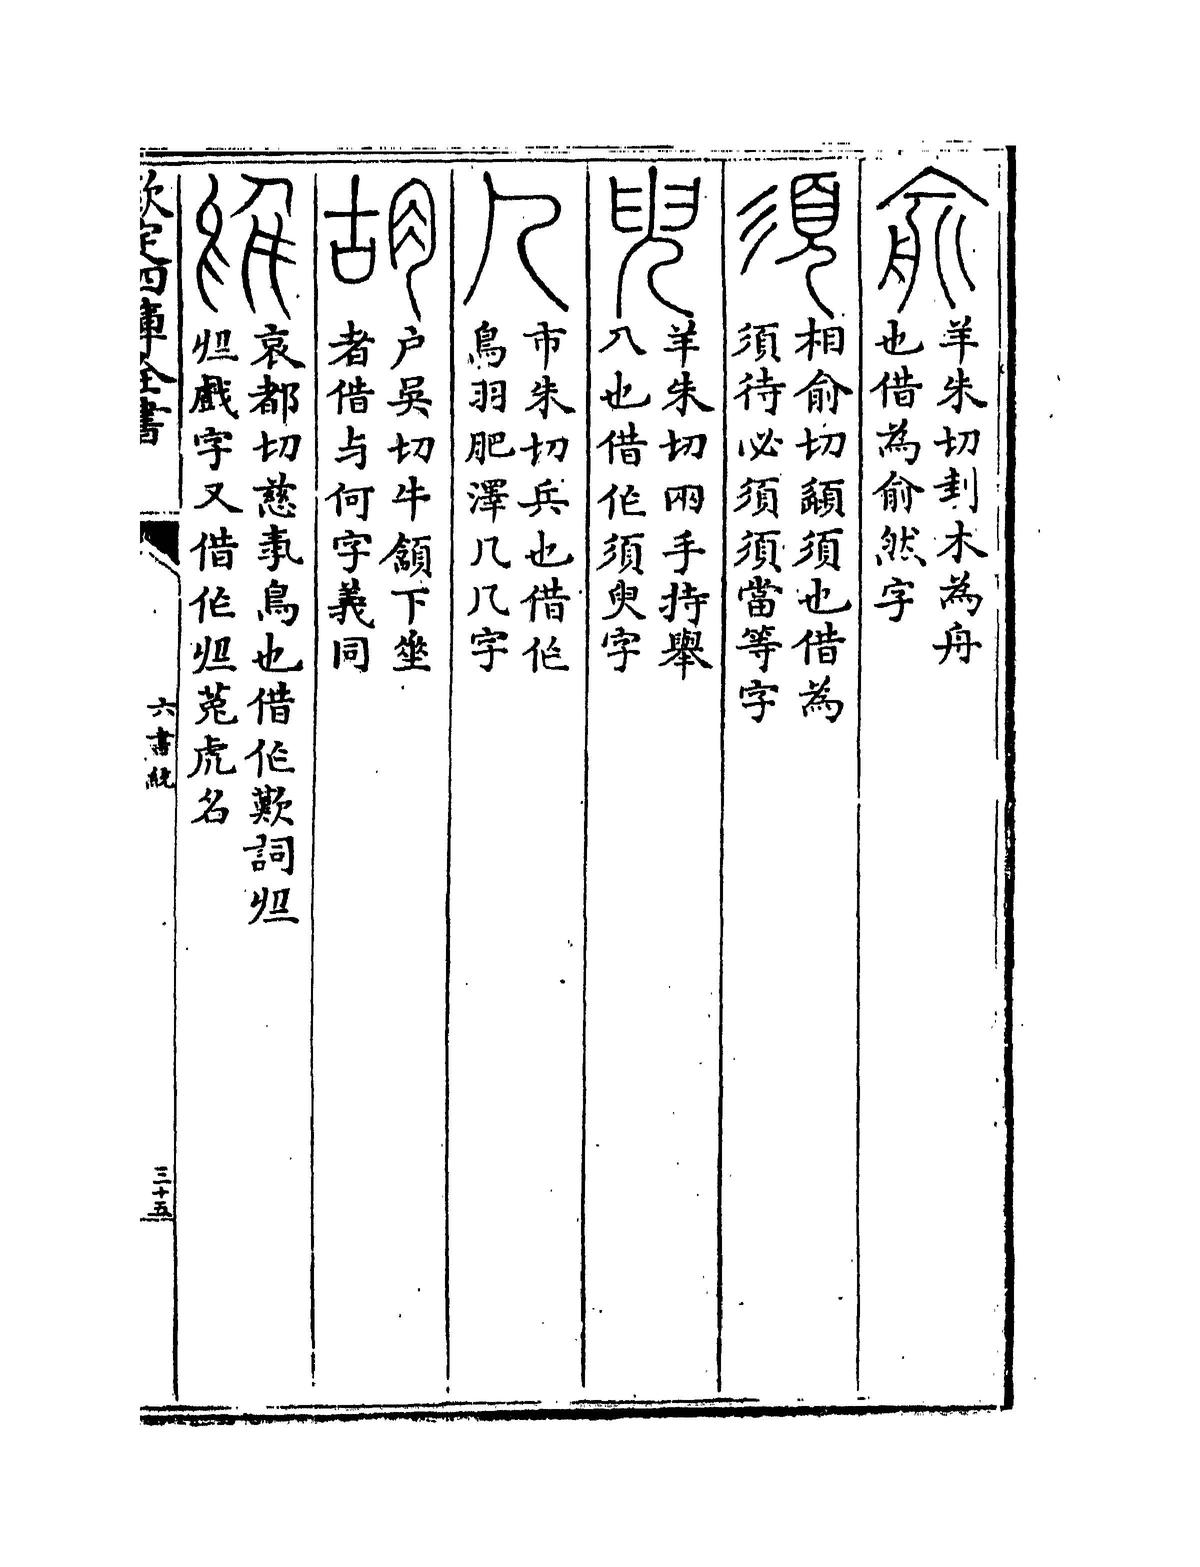 俞
羊朱切刲木為舟
也借為俞然字
須
相俞切須也借為
須待必須須當等字
臾
羊朱切兩手持舉
八也借作須臾字
几
市朱切兵也借作
鳥羽肥澤几几字
胡
户吳切牛頷下垂
者借与何字義同
於
哀都切慈事鳥也借作歎詞於
於戲字又借作於菟虎名
欽定四庫全書
六書統
三十五